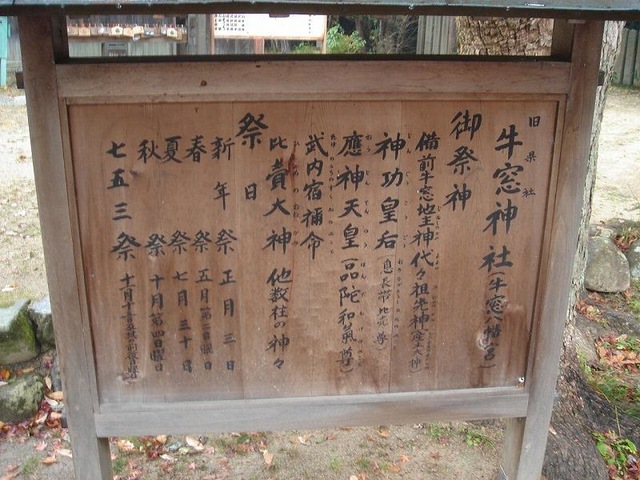 旧県社
牛窓神社(牛窓八幡宮)
御祭神
備前牛窓地主神代々祖先神(産土大神)
神功皇后(息長帯比売尊)
應神天皇(品陀和氣尊)
武内宿禰命
比賣大神他数柱の神々
祭日
新年祭 正月三日
春祭 五月第二日曜日
夏祭 七月三十日
秋祭 十月第四日曜日
七五三祭 十一月十五日